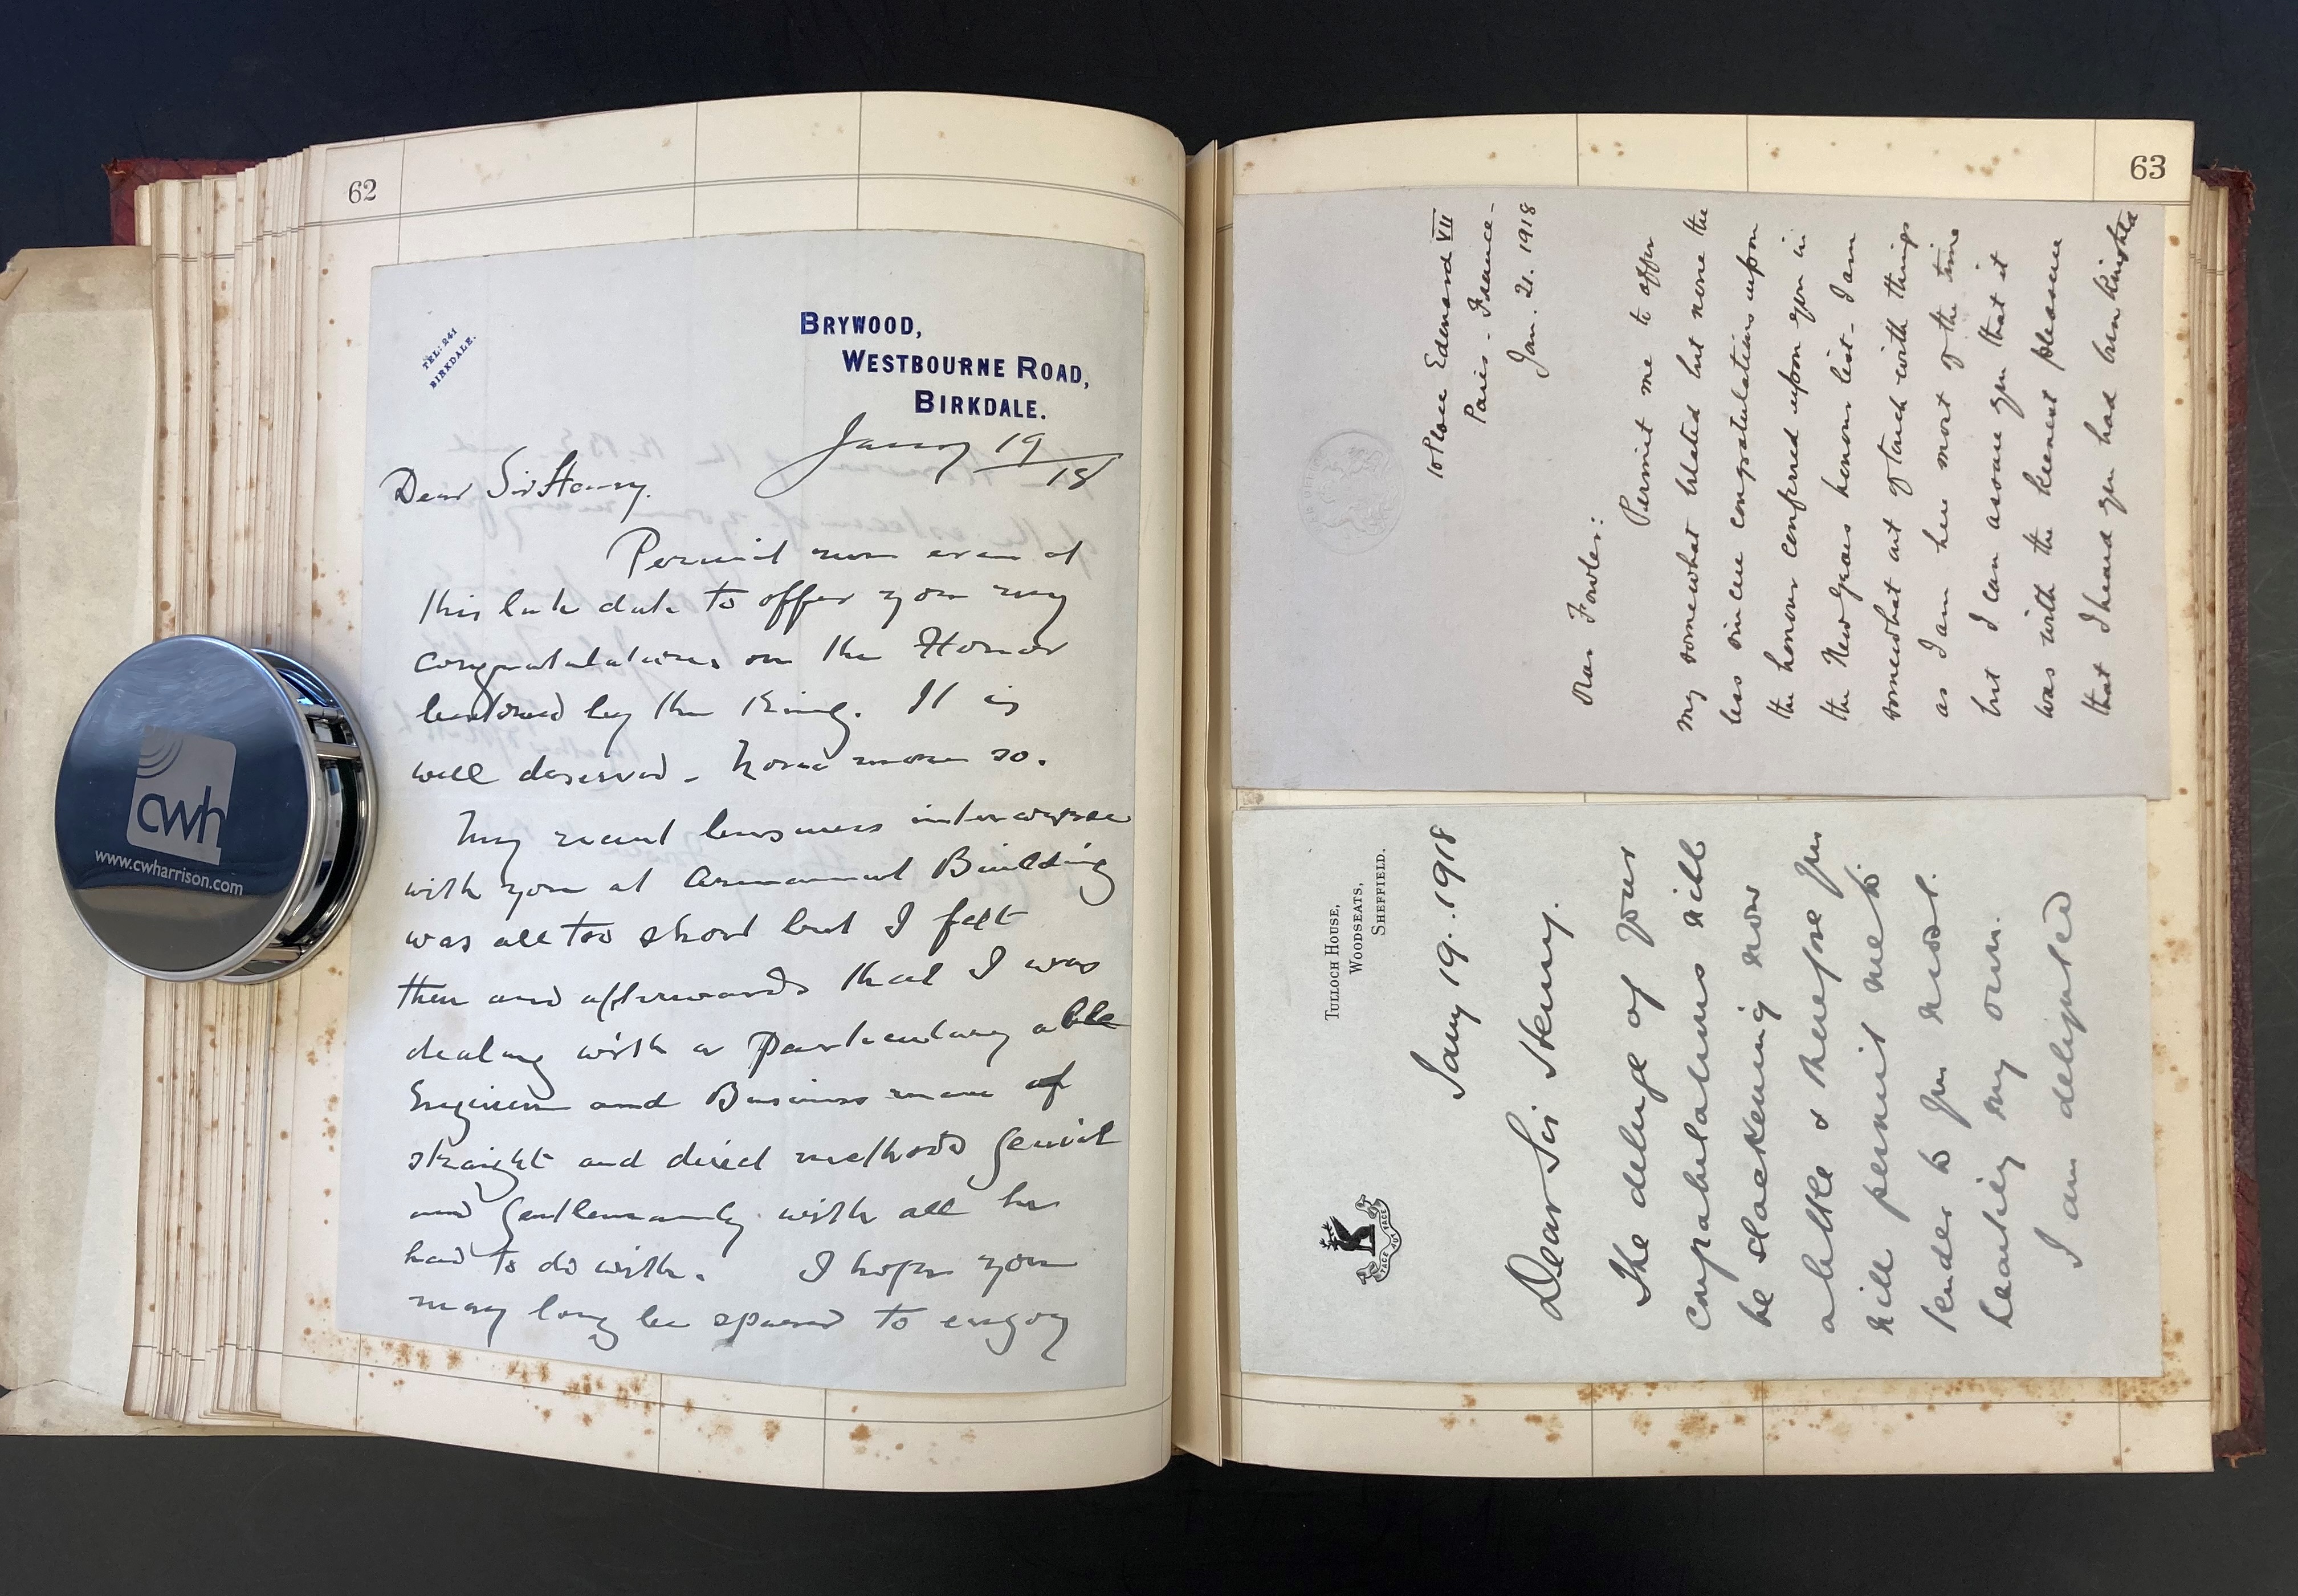 62
TEL: 241
BIRKDALE.
BRYWOOD,
WESTBOURNE ROAD,
BIRKDALE.
Janry 19/18
Dear Sir Henry.
Permit me even at
this late date to offer you my
congratulations on the Honor
bestowed by the King. It is
well deserved - none more so.
My recent business intercourse
with you at Armament Building
was all too short but I felt
then and afterwards that I was
dealing with a particulary able
Engineer and Business man of
straight and direct methods genial
and gentlemanly with all he
had to do with. I hope you
may long be spared to enjoy
cwh
www.cwharrison.com
63
10 Place Edouard VII
Paris - France -
Jan. 21. 1918
Dear Fowler:
Permit me to offer
my somewhat belated but none the
less sincere congratulations upon
the honour conferred upon you in
the New Years honour list - I am
somewhat out of touch with things
as I am here most of the time
but I can assure you that it
was with the keenest pleasure
that I heard you had been knighted
TULLOCH HOUSE,
WOODSEATS,
SHEFFIELD.
TACE AUT FACE
Jany 19. 1918
Dear Sir Henry.
The deluge of your
congratulations will
be slackening now
a little & therefore you
will permit me to
tender to you most
heartily my own.
I am delighted